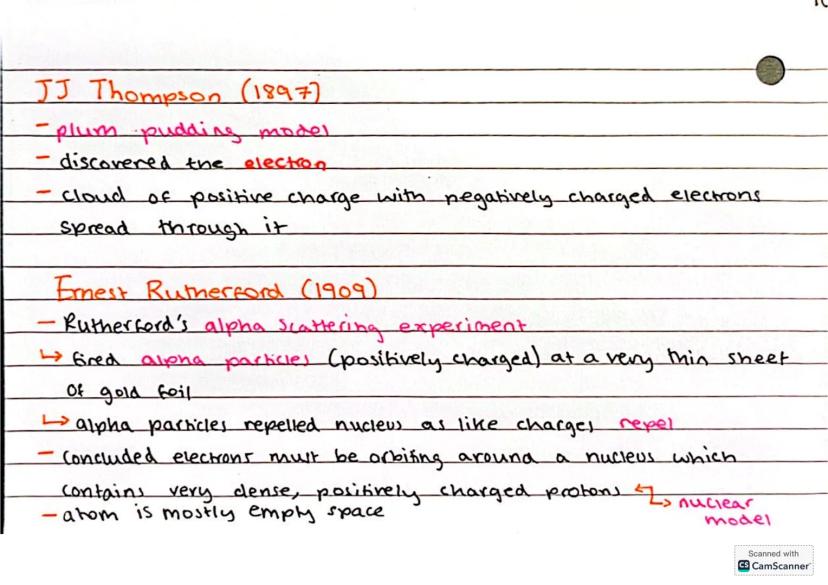 JJ Thompson (1897)
- plum pudding model
- discovered the electron
- cloud of positive charge with negatively charged electrons
spread through it
Ernest Rutherford (1909)
- Rutherford's alpha scattering experiment
↳ fired alpha particles (positively charged) at a very thin sheet
of gold foil
↳ alpha particles repelled nucleus as like charges repel
- concluded electrons must be orbiting around a nucleus which
contains very dense, positively charged protons
↳ nuclear
model
- atom is mostly empty space
Scanned with
CS CamScanner